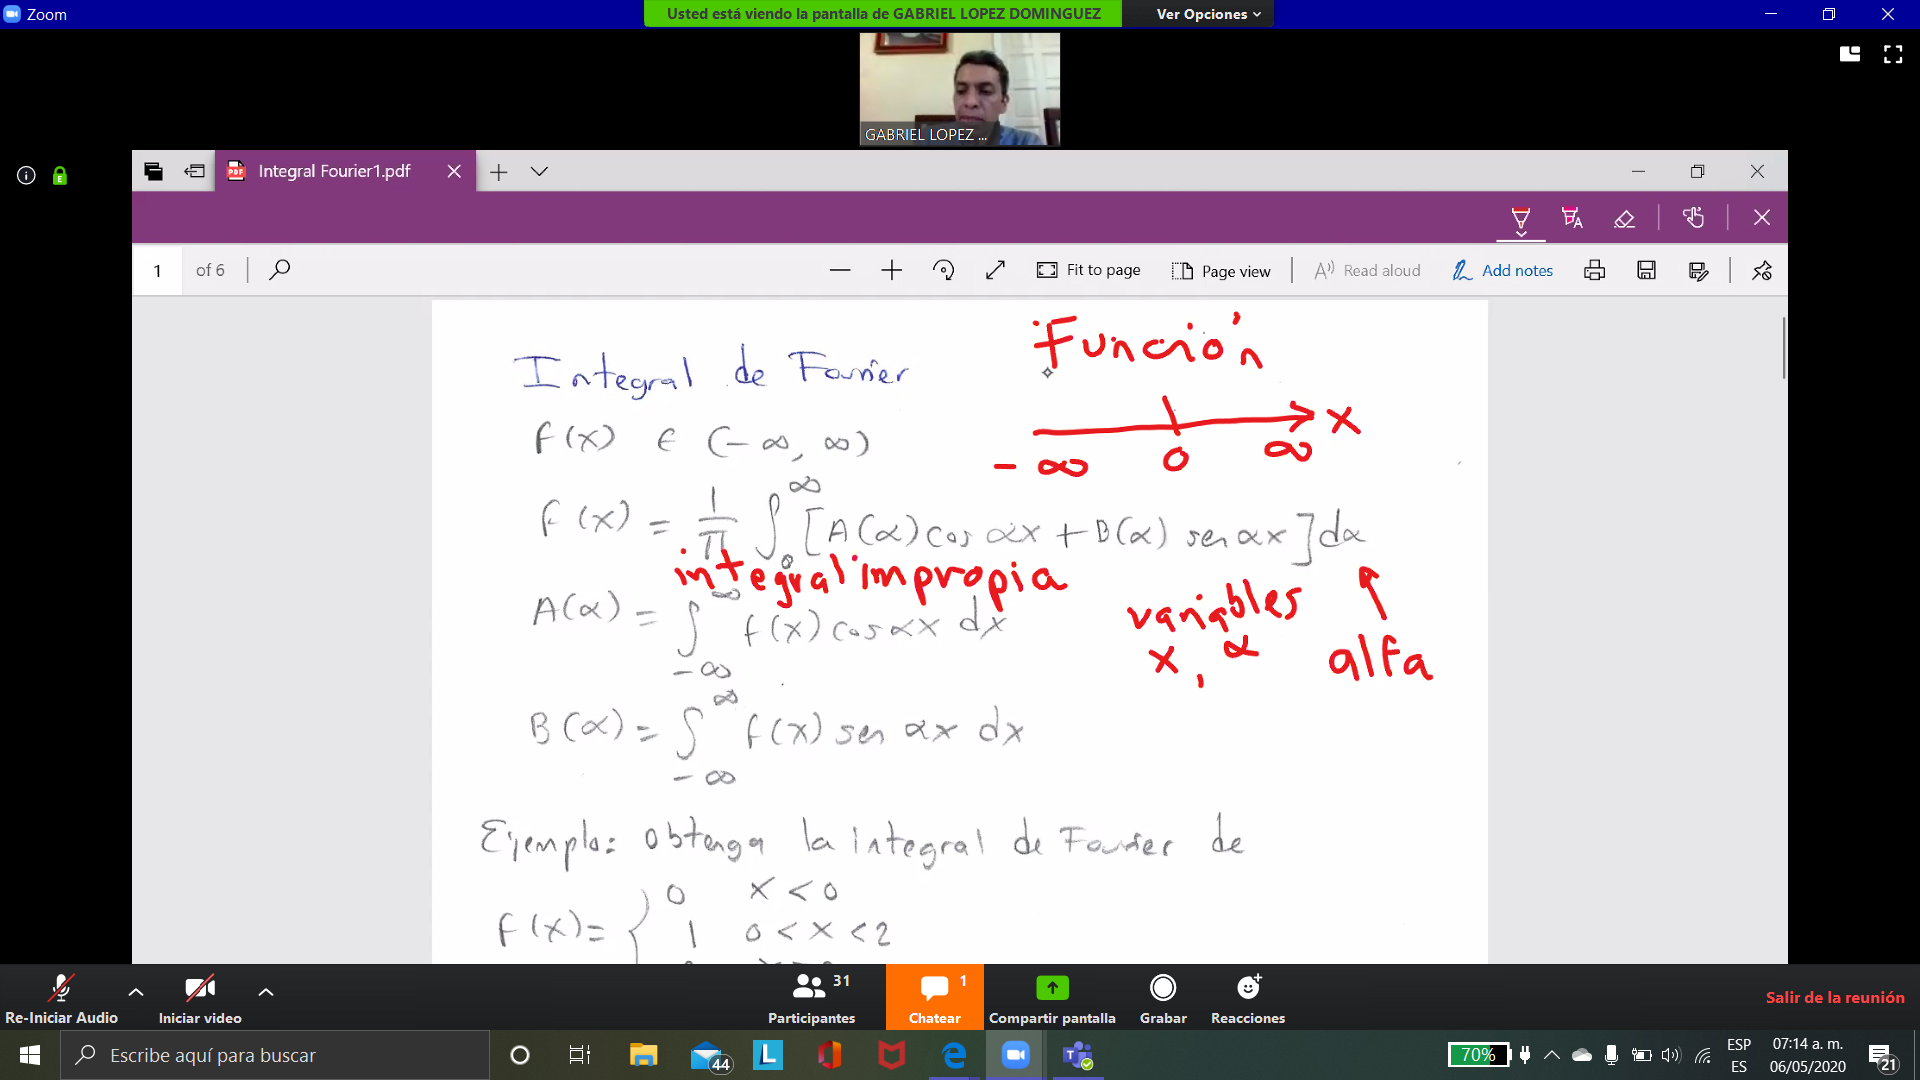 Zoom
Usted está viendo la pantalla de GABRIEL LOPEZ DOMINGUEZ
Ver Opciones
GABRIEL LOPEZ ...
Integral Fourier1.pdf
1 of 6
Fit to page
Page view
Read aloud
Add notes
Función
Integral de Fourier
f(x) ∈ (-∞, ∞)
x
-∞ 0 ∞
f(x) = 1/π ∫₀^∞ [A(α) cos αx + B(α) sen αx] dα
integral impropia
A(α) = ∫_{-∞}^{∞} f(x) cos αx dx
variables
x, α
alfa
B(α) = ∫_{-∞}^{∞} f(x) sen αx dx
Ejemplo: Obtenga la integral de Fourier de
f(x) = { 0 x < 0
1 0 < x < 2
Re-Iniciar Audio
Iniciar video
Participantes 31
Chatear 1
Compartir pantalla
Grabar
Reacciones
Salir de la reunión
Escribe aquí para buscar
44
70%
ESP
ES
07:14 a. m.
06/05/2020
21